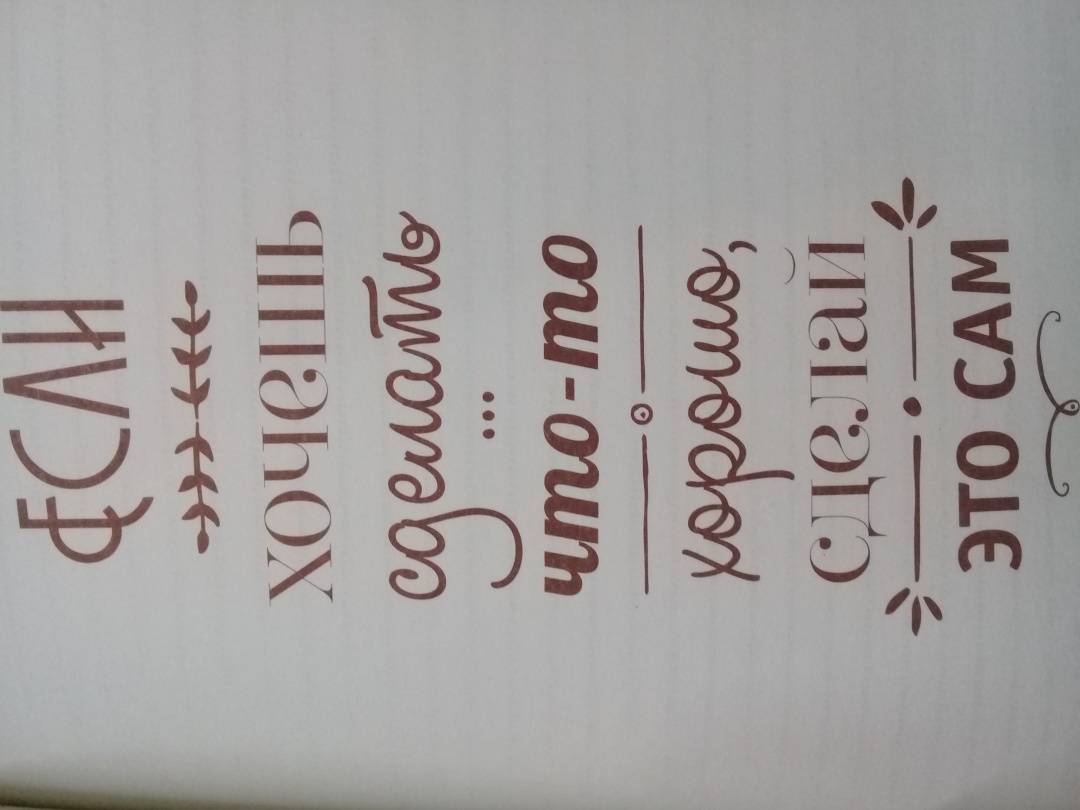 ЕСЛИ
ХОЧЕШЬ
сделать
...
что-то
хорошо,
сделай
ЭТО САМ